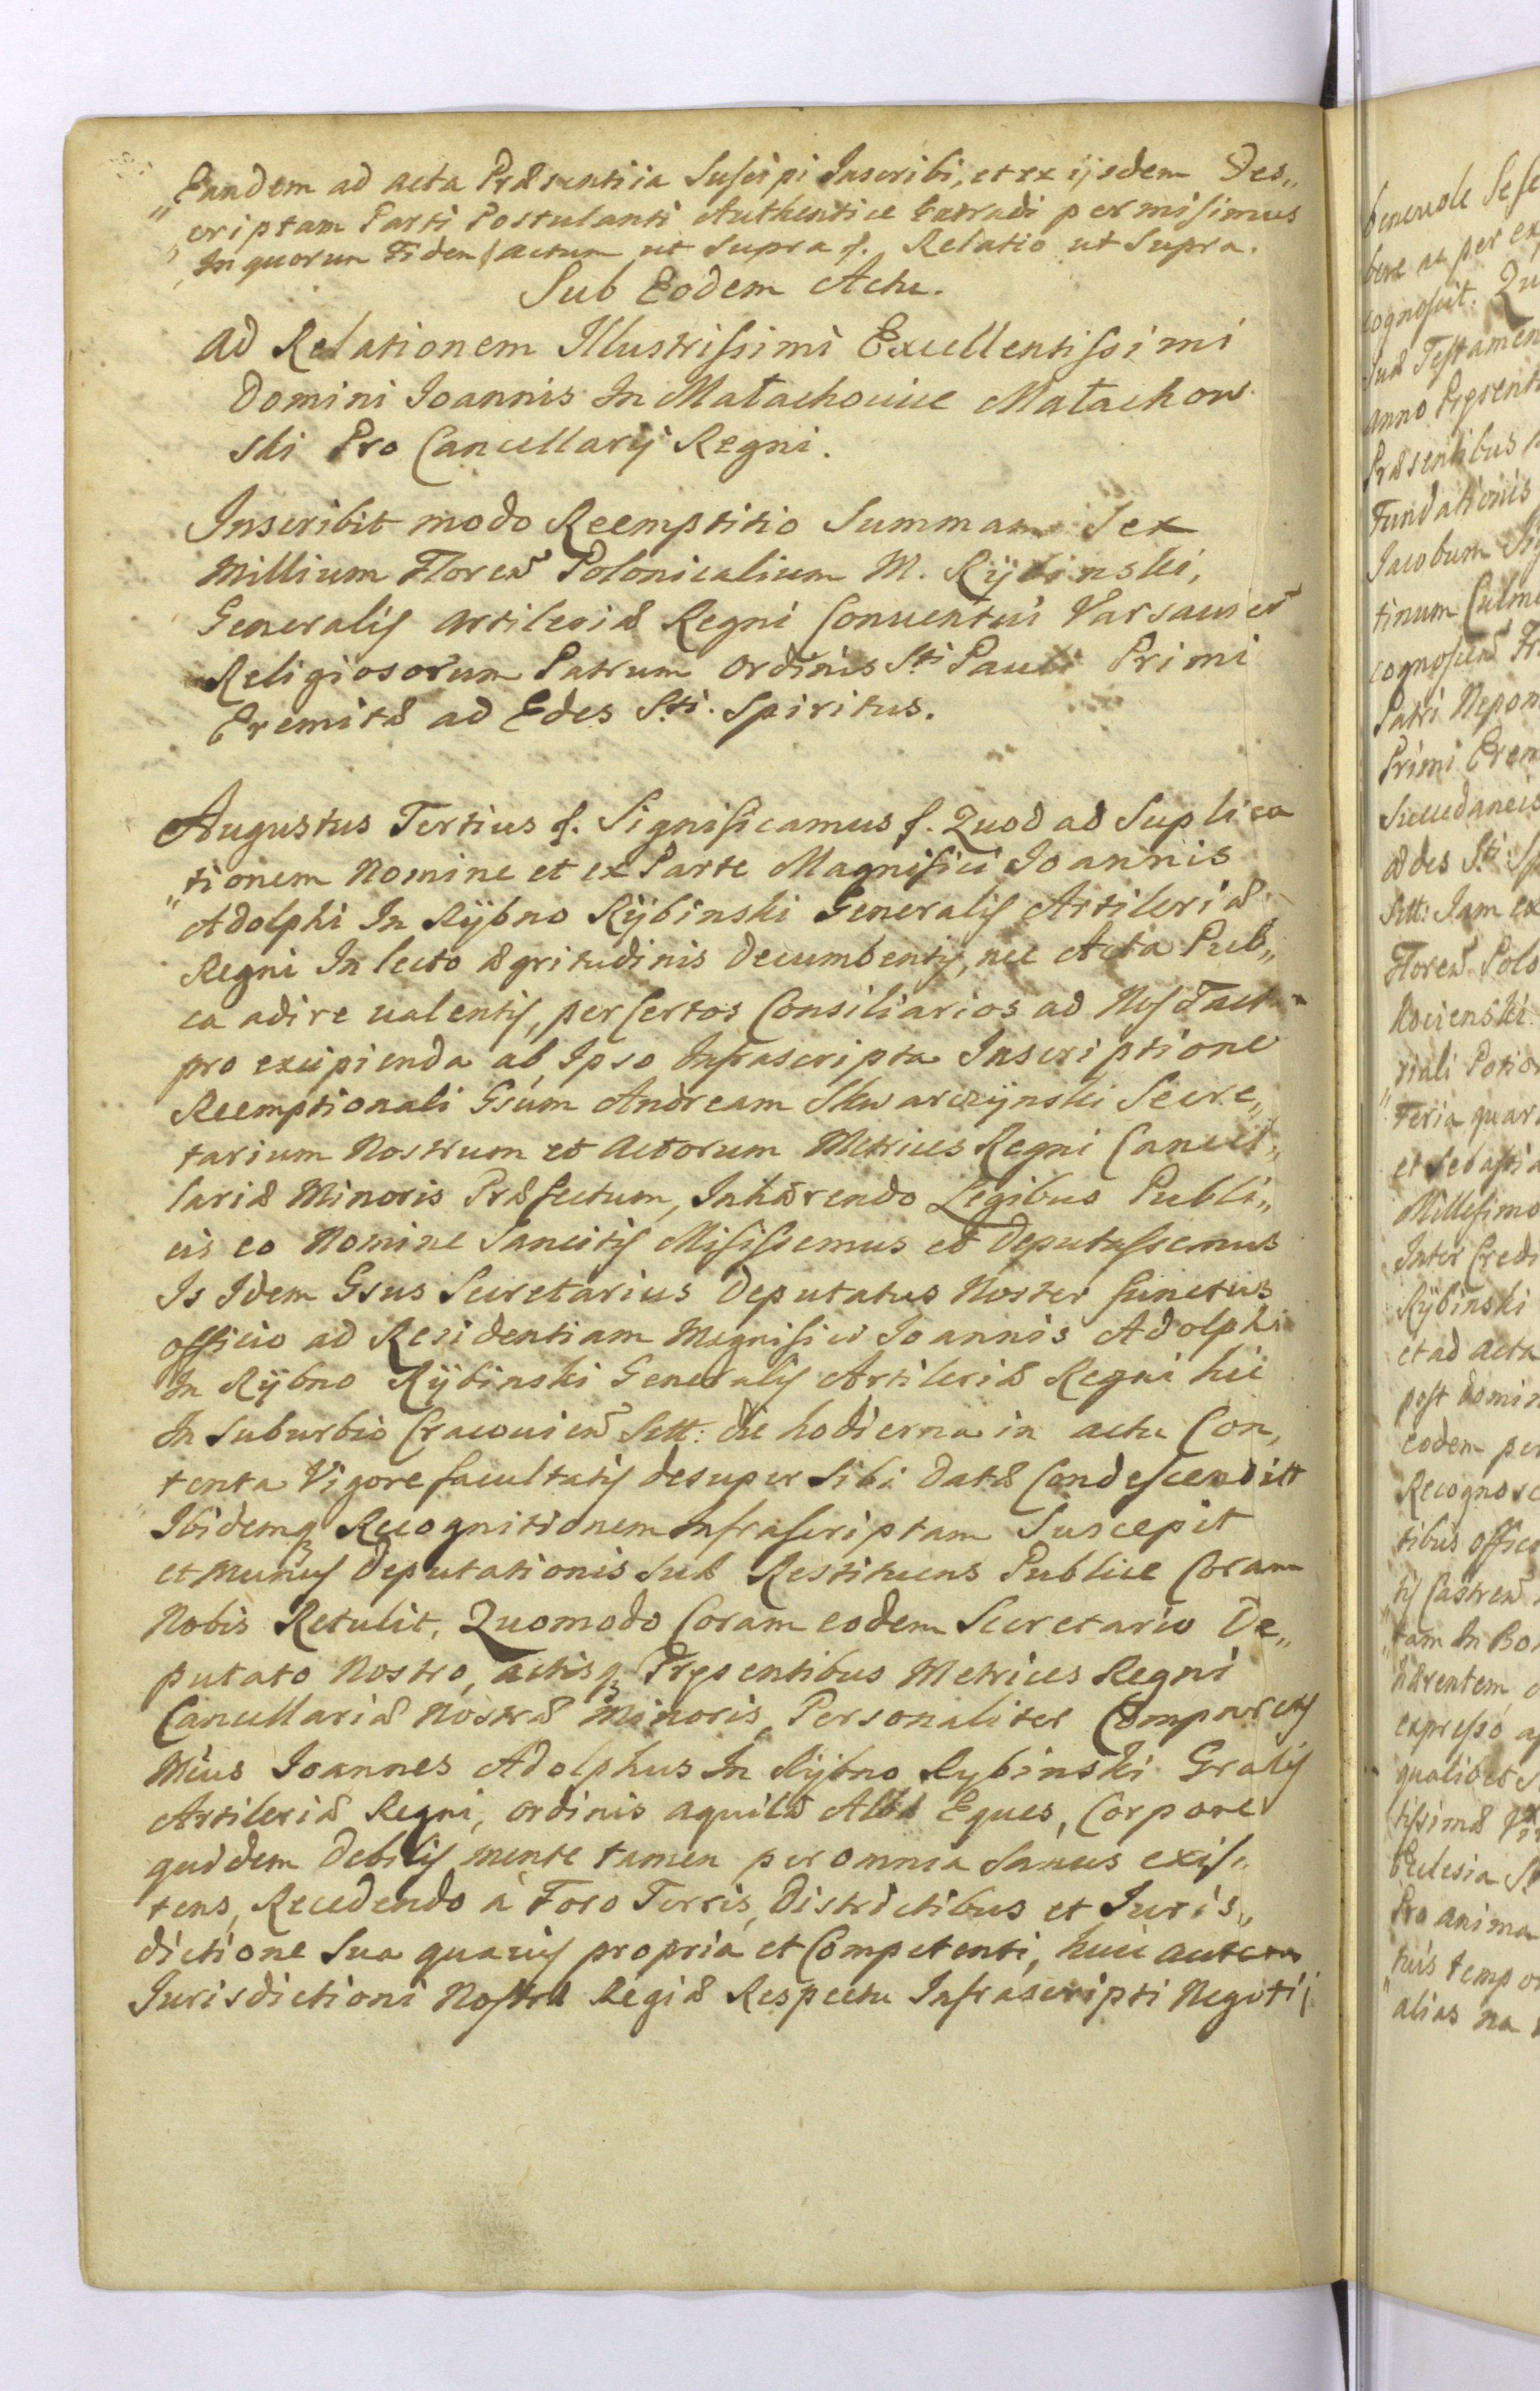 Eandem ad acta Præsentiia Suscipi Inscribi, et ex ijsdem Des„
„criptam Parti Postulanti Authentice Extradi permisimus
In quorum Fidem /actum ut Supra f. Relatio ut Supra.
Sub Eodem Actu.
Ad Relationem Illustrissimi Excellentissimi
Domini Ioannis In Małachowice Małachow
ski Pro Cancellarij Regni.
Inscribit modo Reemptitio Summam Sex
Millium Floren Polonicalium M. Rÿbinski,
Generalis Artileriæ Regni Conventui Varsavien
Religiosorum Patrum Ordinis Sti Pauli Primi
Eremitæ ad Edes Sti. Spiritus.
Augustus Tertius f. Significamus f. Quod ad Suplica
„tionem Nomine et ex Parte Magnifici Ioannis
Adolphi In Rÿbno Rÿbinski Generalis Artileriæ
Regni In lecto ægritudinis Decumbentis, nec Acta Pub„
ca adire valentis, per Certos Consiliarios ad Nos Factam
pro excipienda ab Ipso Infrascripta Inscriptione
Reemptionali Gsum Andream Skwarczÿnski Secre„
tarium Nostrum et Actorum Metrices Regni Cancel„
lariæ Minoris Præfectum, Inhærendo Legibus Publi„
cis eo Nomine Sancitis Misissemus et Deputassemus
Is Idem Gsus Secretarius Deputatus Noster functus
officio ad Residentiam Magnifici Ioannis Adolphi
In Rÿbno Rÿbinski Generalis Artileriæ Regni hic
In Suburbio Cracovien Sitt: die hodierna in actu Con„
„tenta Vigore facultatis desuper Sibi Datæ Condescendit
Ibidemq3 Recognitionem Infrascriptam Suscepit
et munus Deputationis Suæ Restituens Publice Coram
Nobis Retulit, Quomodo Coram eodem Secretario De„
putato Nostro, actisq3 Præsentibus Metrices Regni
Cancellariæ Nostræ Minoris, Personaliter Comparens
Mcus Ioannes Adolphus In Rÿbno Rybinski Gralis
Artileriæ Regni, Ordinis Aquilæ Albæ Eques, Corpore
quidem Debilis mente tamen per omnia Sanus exis„
tens, Recedendo à Foro Terris, Districtibus et Iuris„
dictione Sua quavis propria et Competenti, huic autem
Iurisdictioni Nostræ Regiæ Respectu Infrascripti Negotij
benevole Sese
bene ac per ex
cognoscit. Qu
Suæ Testamen
Anno Præsenti
Præsentibus
Fundationis
Iacobum
tinum Culm
Patri Nepom
Primi Erem
Succedaneis
ædes Sti Sp
Sitt: Iam ex
Floren Polo
riali Potior
Feria quar
et Sebastia
Millesimo
Inter Credi
Rÿbinski
et ad Acta
post Domin
eodem per
Recognosc
tibus offici
tis Castren
„tam In Bon
hærentem
expresso
qualibet
tissimæ
Ecclesia S
Pro anima
„tuis tempor
alias na